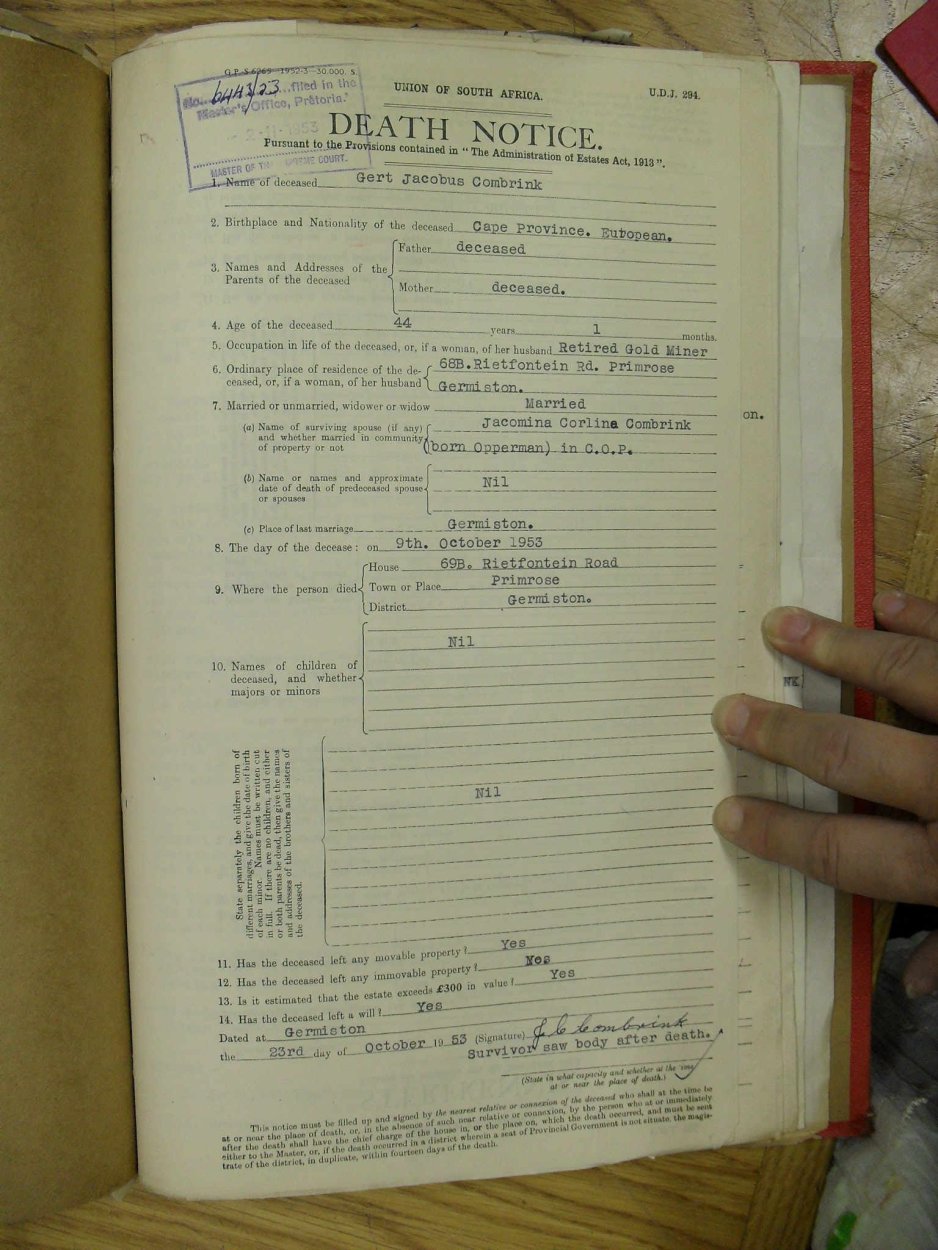 G.P.-S.6269—1952-3—30,000. S.
No. 6443/53 filed in the
Master's Office, Pretoria.
2-11-1953
MASTER OF THE SUPREME COURT.
UNION OF SOUTH AFRICA.
U.D.J. 294.
DEATH NOTICE.
Pursuant to the Provisions contained in "The Administration of Estates Act, 1913".
1. Name of deceased Gert Jacobus Combrink
2. Birthplace and Nationality of the deceased Cape Province. European.
3. Names and Addresses of the Parents of the deceased
Father deceased
Mother deceased.
4. Age of the deceased 44 years 1 months.
5. Occupation in life of the deceased, or, if a woman, of her husband Retired Gold Miner
6. Ordinary place of residence of the de-
ceased, or, if a woman, of her husband
68B.Rietfontein Rd. Primrose
Germiston.
7. Married or unmarried, widower or widow Married
(a) Name of surviving spouse (if any)
and whether married in community
of property or not
Jacomina Corlina Combrink
(born Opperman) in C.O.P.
on.
(b) Name or names and approximate
date of death of predeceased spouse
or spouses
Nil
(c) Place of last marriage Germiston.
8. The day of the decease: on 9th. October 1953
9. Where the person died
House 69B. Rietfontein Road
Town or Place Primrose
District Germiston.
10. Names of children of
deceased, and whether
majors or minors
Nil
NK.
State separately the children born of
different marriages, and give the date of birth
of each minor. Names must be written out
in full. If there are no children, and either
or both parents be dead, then give the names
and addresses of the brothers and sisters of
the deceased.
Nil
11. Has the deceased left any movable property? Yes
12. Has the deceased left any immovable property?
13. Is it estimated that the estate exceeds £300 in value? Yes
14. Has the deceased left a will? Yes
Dated at Germiston
the 23rd day of October 1953 (Signature) J C Combrink
Survivor saw body after death.
(State in what capacity and whether at the time
at or near the place of death.)
This notice must be filled up and signed by the nearest relative or connexion of the deceased who shall at the time be
at or near the place of death, or, in the absence of such near relative or connexion, by the person who at or immediately
after the death shall have the chief charge of the house in, or the place on, which the death occurred, and must be sent
either to the Master, or, if the death occurred in a district wherein a seat of Provincial Government is not situate, the magis-
trate of the district, in duplicate, within fourteen days of the death.